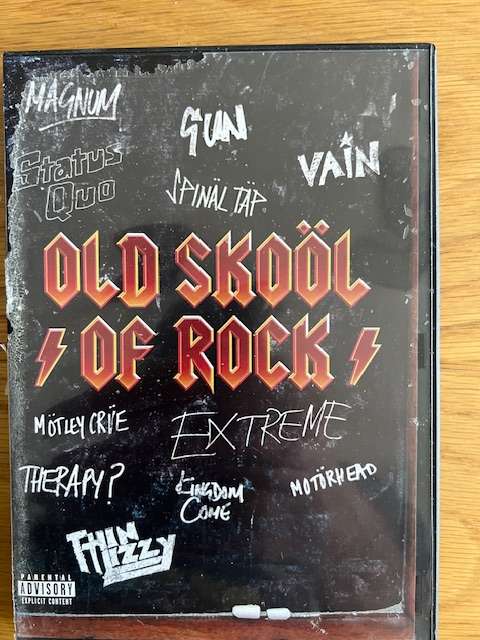 MAGNUM
GUN
VAIN
Status
Quo
SPINÄL TÄP
OLD SKOÖL
OF ROCK
MÖTLEY CRÜE
EXTREME
THERAPY?
KINGDOM
COME
MOTÖRHEAD
THIN
LIZZY
PARENTAL
ADVISORY
EXPLICIT CONTENT